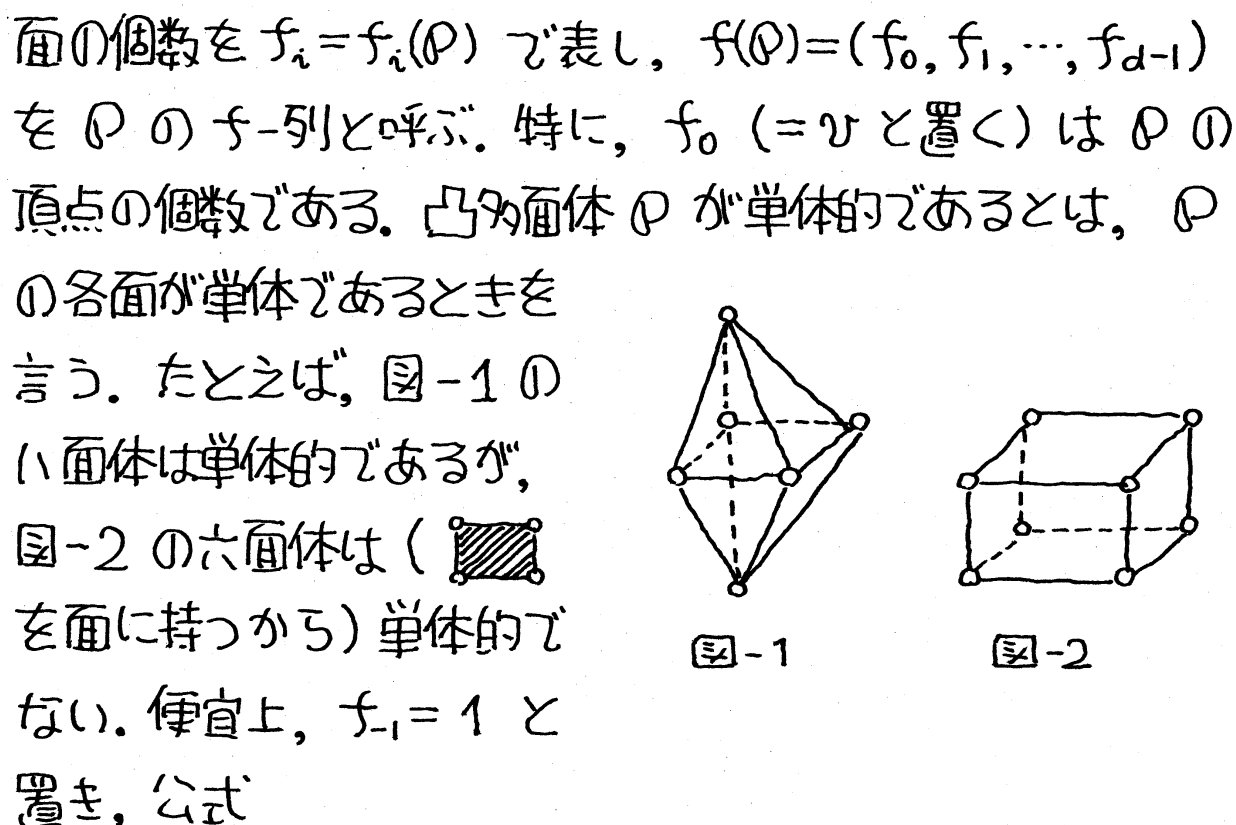 面の個数を f_i=f_i(P) で表し, f(P)=(f_0, f_1, …, f_{d-1})
を P の f-列と呼ぶ. 特に, f_0 (=v と置く) は P の
頂点の個数である. 凸多面体 P が単体的であるとは, P
の各面が単体であるときを
言う. たとえば, 図-1 の
八面体は単体的であるが,
図-2 の六面体は (
を面に持つから) 単体的で
ない. 便宜上, f_{-1}=1 と
置き, 公式
図-1
図-2